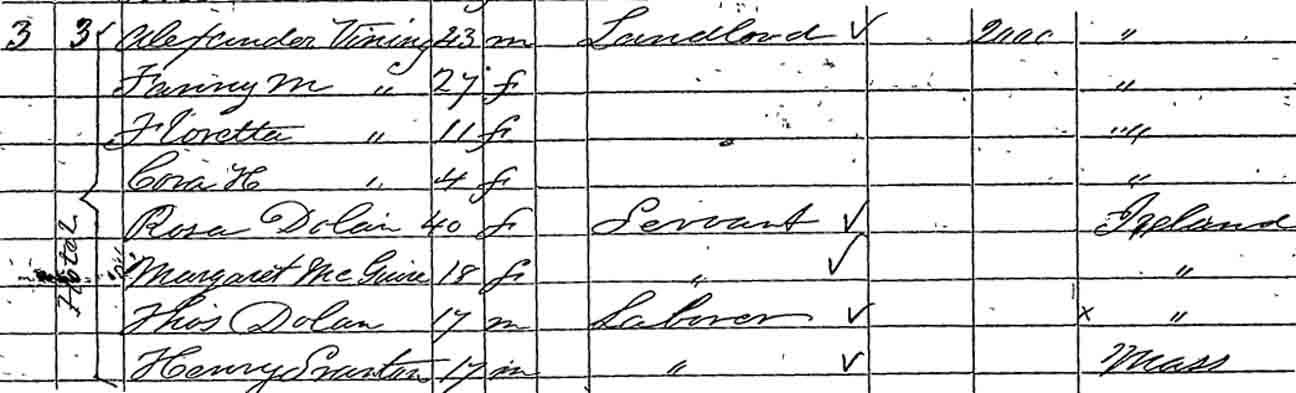 3 3 Alexander Vining 43 m Landlord ✓ 2000 "
Fanny M " 27 f "
Floretta " 11 f "
Cora H " 4 f "
Rosa Dolan 40 f Servant ✓ Ireland
Margaret McGuire 18 f " ✓ "
Thos Dolan 17 m Laborer ✓ x "
Henry 17 m " ✓ Mass
Hotel